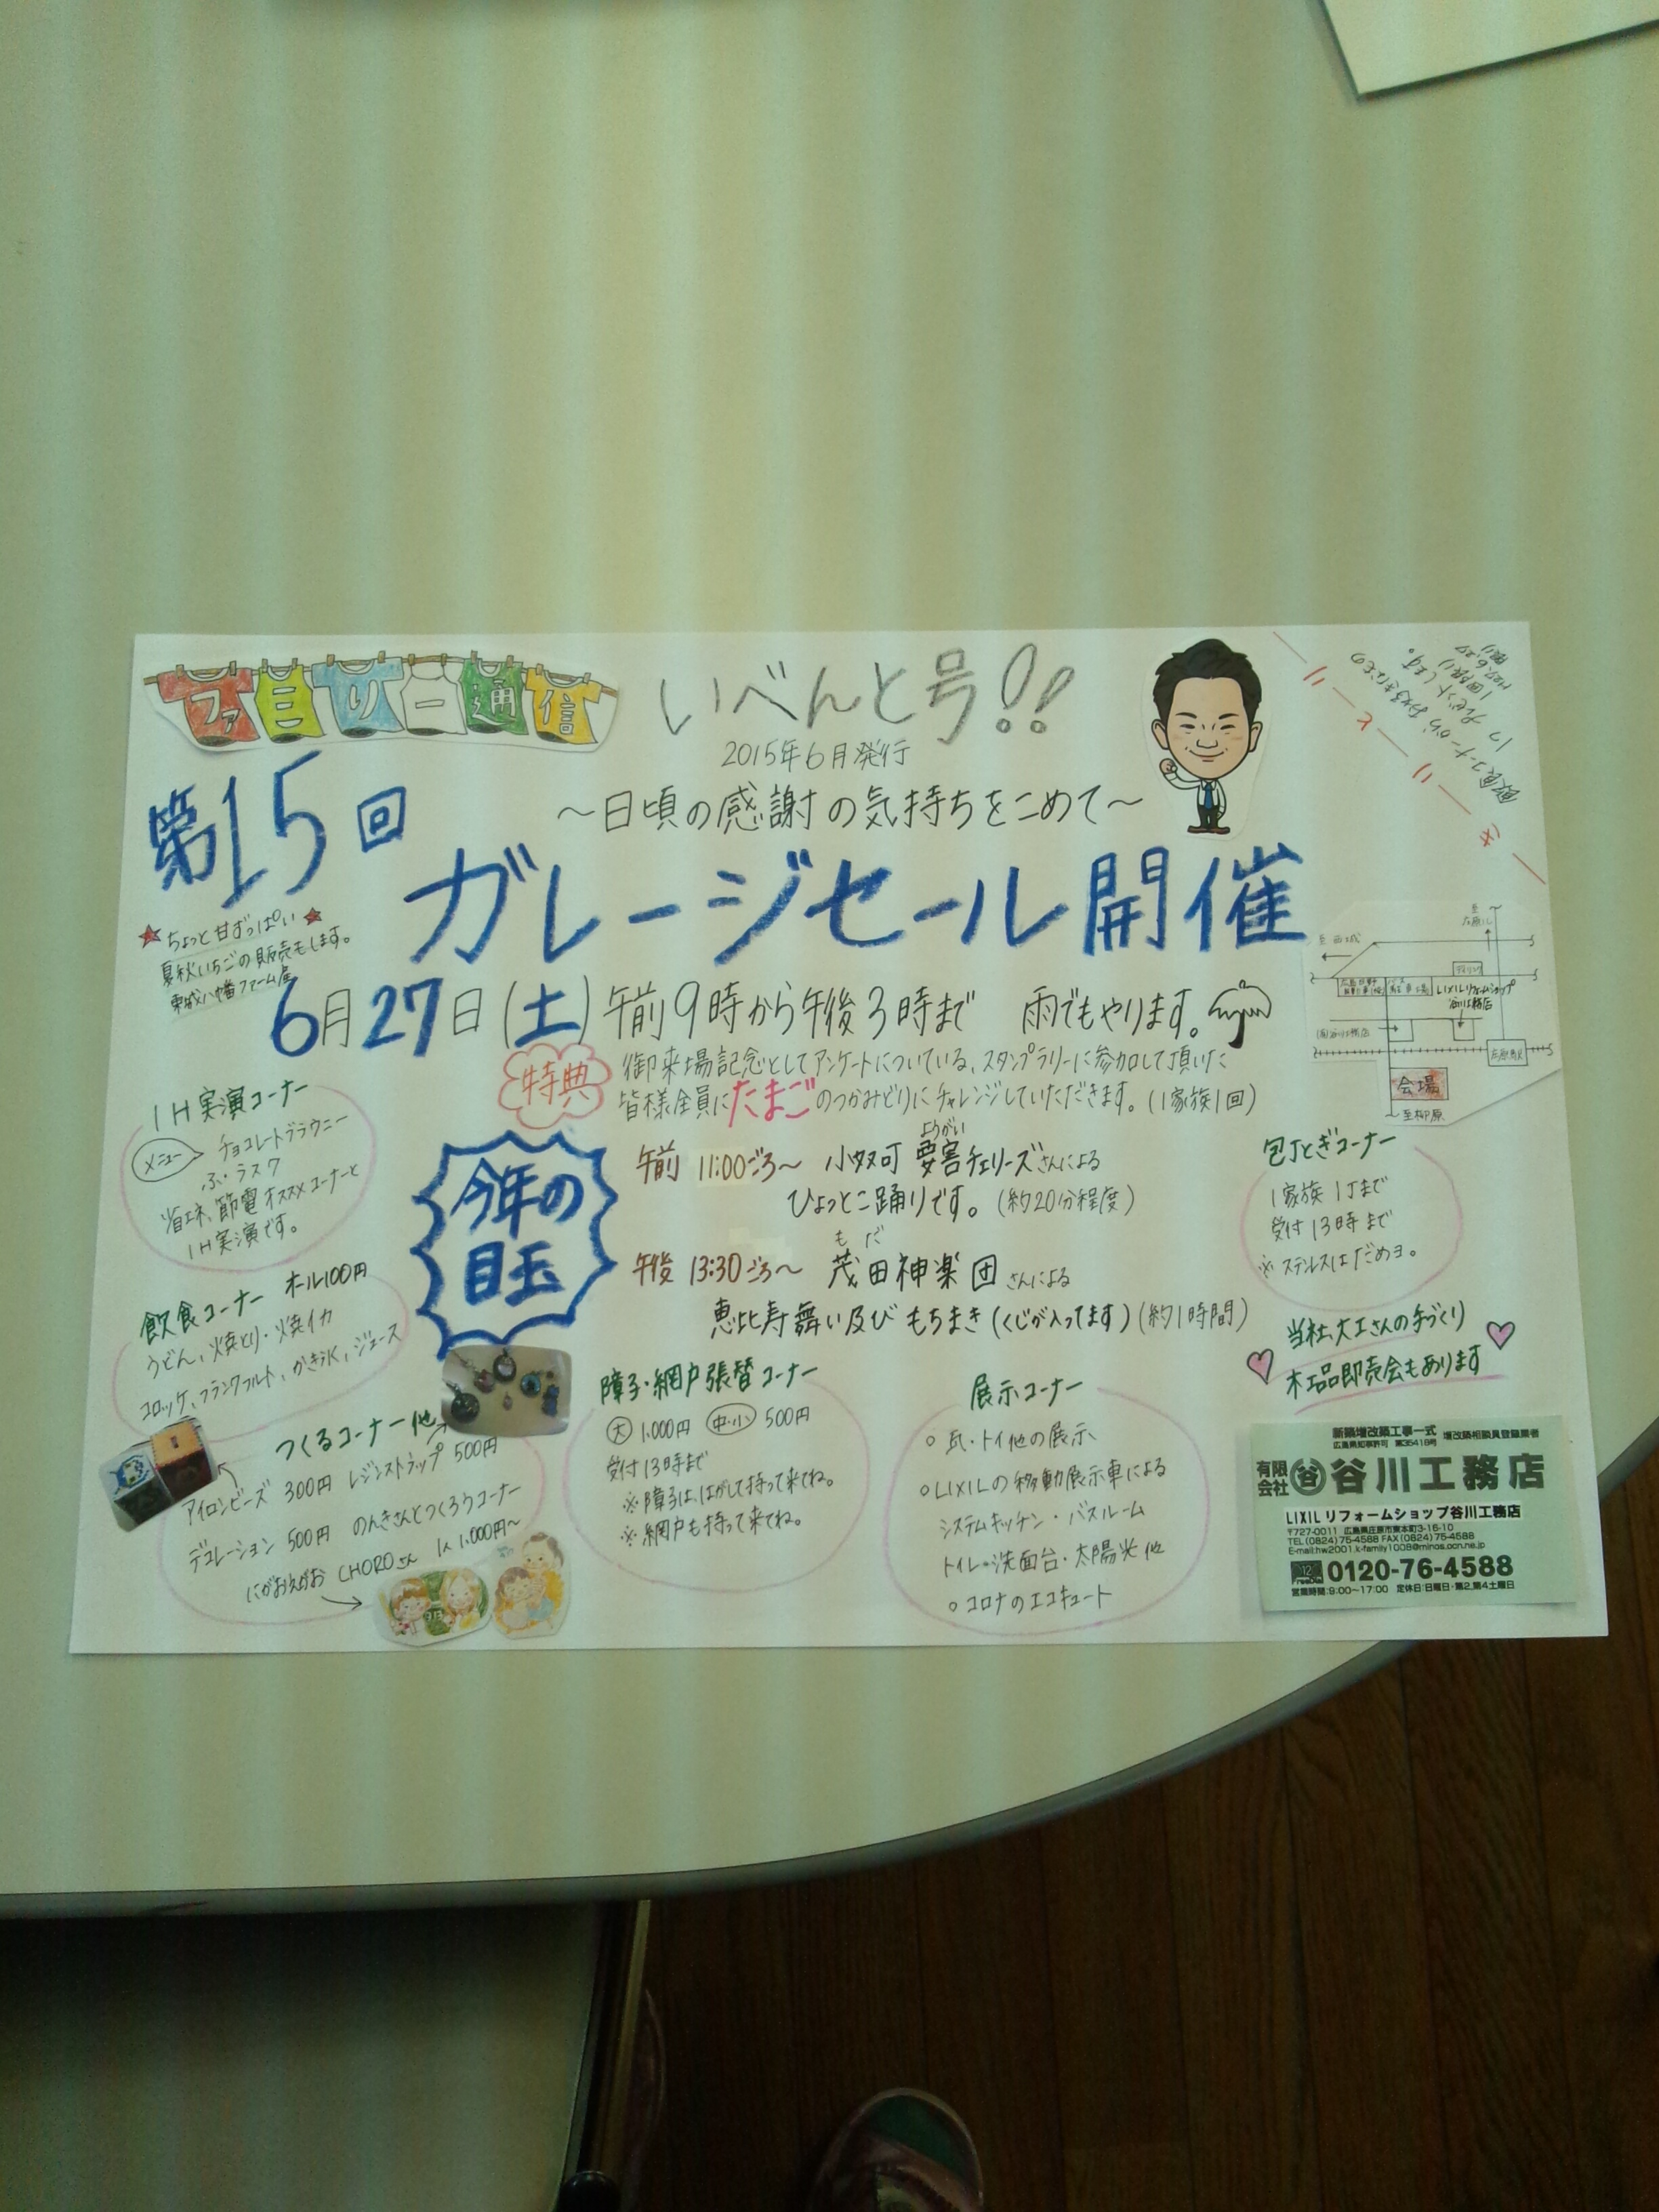 ファミリー通信
いべんと号!!
2015年6月発行
～日頃の感謝の気持ちをこめて～
第15回
ガレージセール開催
★ちょっと甘ずっぱい★
夏秋いちごの販売もします。
東城八幡ファーム産
6月27日(土)午前9時から午後3時まで 雨でもやります。
特典
御来場記念としてアンケートについている、スタンプラリーに参加して頂いた
皆様全員にたまごのつかみどりにチャレンジしていただきます。(1家族1回)
今年の
目玉
午前 11:00ごろ～ 小奴可 要害チェリーズさんによる
ようがい
ひょっとこ踊りです。(約20分程度)
午後 13:30ごろ～ 茂田神楽団さんによる
もだ
恵比寿舞い及びもちまき(くじが入ってます)(約1時間)
IH実演コーナー
メニュー
チョコレートブラウニー
ふ・ラスク
省エネ、節電オススメコーナーと
IH実演です。
飲食コーナー オール100円
うどん、焼とり・焼イカ
コロッケ、フランクフルト、かき氷、ジュース
つくるコーナー他
アイロンビーズ 300円 レジンストラップ 500円
デコレーション 500円 のんきさんとつくろうコーナー
にがおえがお CHOROさん 1人 1,000円～
障子・網戸張替コーナー
大 1,000円 中・小 500円
受付13時まで
※障子は、はがして持って来てね。
※網戸も持って来てね。
展示コーナー
○瓦・トイ他の展示
○LIXILの移動展示車による
システムキッチン・バスルーム
トイレ・洗面台・太陽光他
○コロナのエコキュート
包丁とぎコーナー
1家族 1丁まで
受付 13時まで
※ステンレスはだめヨ。
当社大工さんの手づくり
木工品即売会もあります
至西城
LIXILリフォームショップ
谷川工務店
会場
新築増改築工事一式 増改築相談員登録業者
広島県知事許可 第35418号
有限会社 谷 谷川工務店
LIXIL リフォームショップ谷川工務店
〒727-0011 広島県庄原市東本町3-15-10
TEL(0824)75-4588 FAX(0824)75-4588
E-mail:hw2001.k-family1008@minos.ocn.ne.jp
0120-76-4588
営業時間:9:00～17:00 定休日:日曜日・第2,第4土曜日